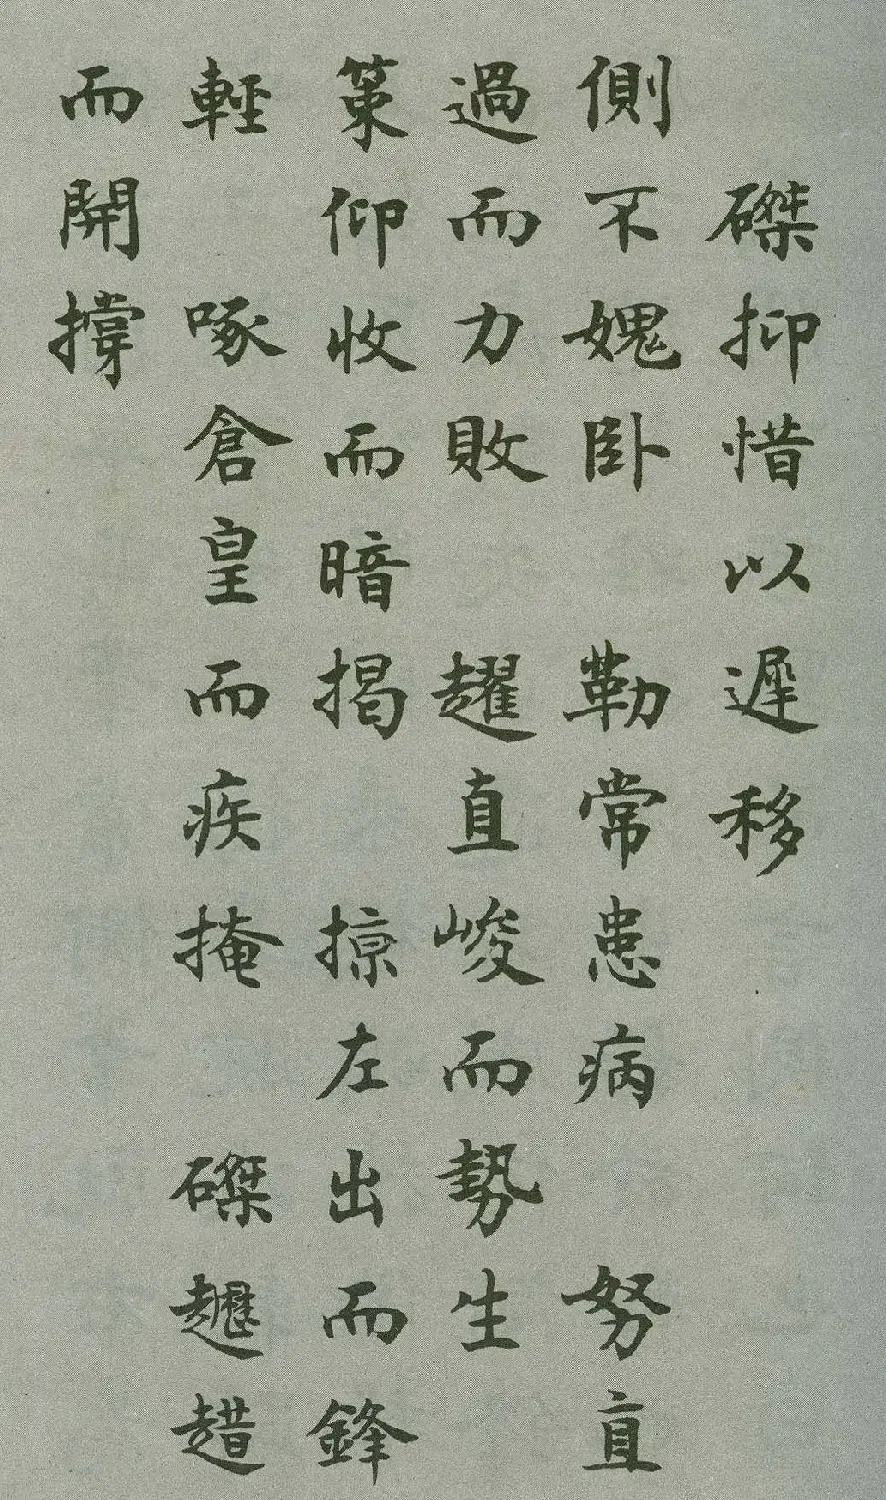 磔抑惜以遲移
側不媿卧 勒常患病 努直
過而力敗 趯直峻而勢生
策仰收而暗揭 掠左出而鋒
輕 啄倉皇而疾掩 磔趯趞
而開撐